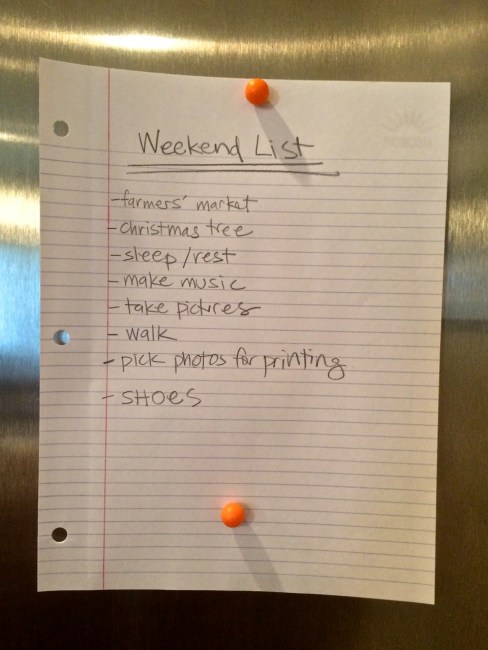 Weekend List
- farmers' market
- christmas tree
- sleep/rest
- make music
- take pictures
- walk
- pick photos for printing
- SHOES